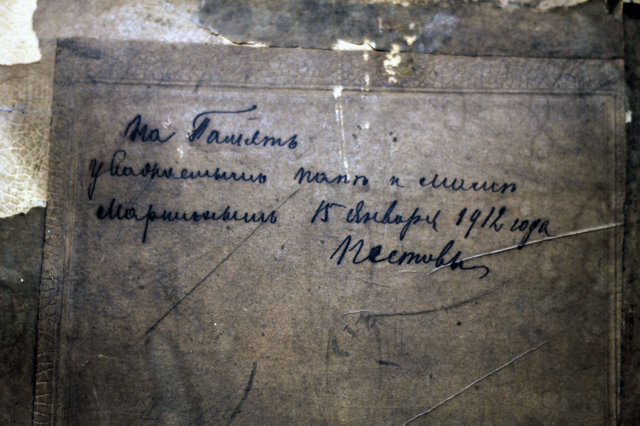 на Память
папѣ и мамѣ
15 Января 1912 года
Пестовы